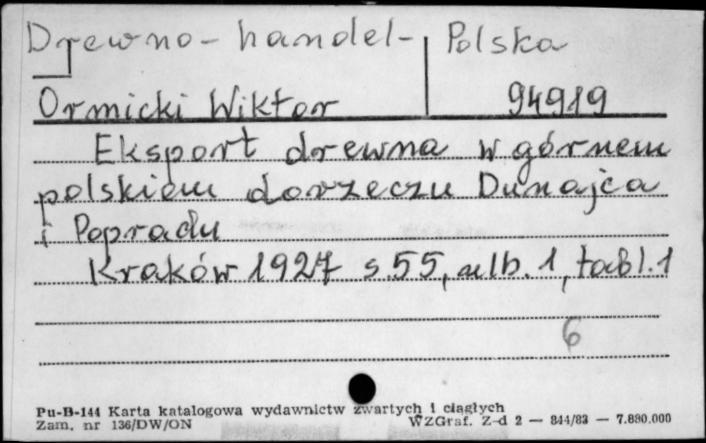 Drewno - handel - Polska
Ormicki Wiktor 94919
Eksport drewna w górnem
polskiem dorzeczu Dunajca
i Popradu
Kraków 1927 s. 55, alb. 1, tabl. 1
6
Pu-B-144 Karta katalogowa wydawnictw zwartych i ciągłych
Zam. nr 136/DW/ON WZGraf. Z-d 2 — 844/83 — 7.880.000